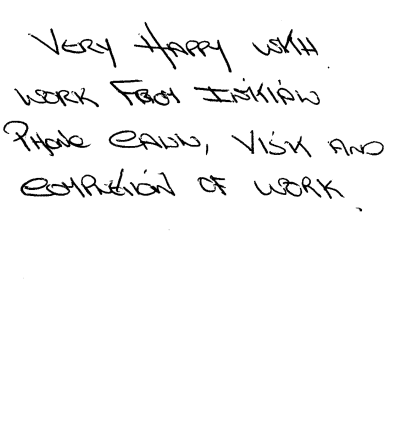 VERY HAPPY WITH
WORK FROM INITIAL
PHONE CALL, VISIT AND
COMPLETION OF WORK.